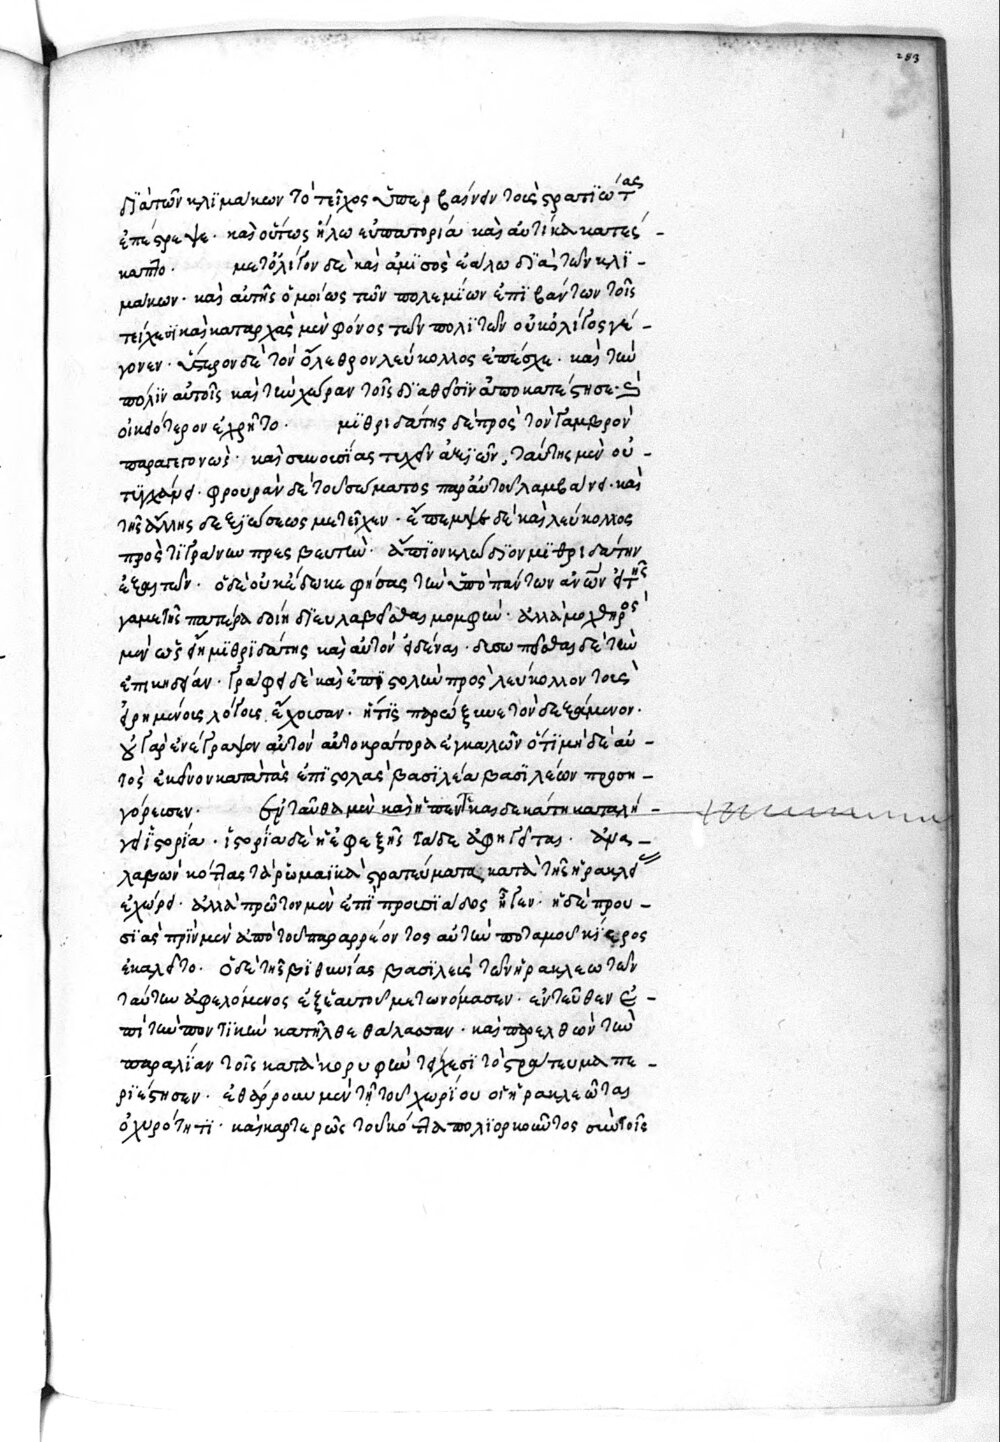 283
διὰ τῶν κλιμάκων τὸ τεῖχος ὑπερβαίνειν τοὺς στρατιώτας
ἐπέτρεψε. καὶ οὕτως ἥλω εὐπατορία καὶ αὐτίκα κατέσ-
καπτο. μετ' ὀλίγον δὲ καὶ ἀμισὸς ἑάλω διὰ τῶν κλι-
μάκων. καὶ αὐτῆς ὁμοίως τῶν πολεμίων ἐπιβάντων τοῖς
τείχεσι καὶ καταρχὰς μὲν φόνος τῶν πολιτῶν οὐκ ὀλίγος γέ-
γονεν. ὕστερον δὲ τὸν ὄλεθρον λεύκολλος ἐπέσχε. καὶ τὴν
πόλιν αὐτοῖς καὶ τὴν χώραν τοῖς διαθεῖσιν ἀποκατέστησε. καὶ
οἰκειότερον ἐχρῆτο. μιθριδάτης δὲ πρὸς τὸν γαμβρὸν
παραγεγονὼς. καὶ συνουσίας τυχεῖν ἀξιῶν, ταύτης μὲν οὐ
τυγχάνει. φρουρὰν δὲ τοῦ σώματος παρ' αὐτοῦ λαμβάνει. καὶ
τῆς ἄλλης δεξιώσεως μετεῖχεν. ἔπεμψε δὲ καὶ λεύκολλος
πρὸς τιγράνην πρεσβευτὴν. ἄππιον κλώδιον μιθριδάτην
ἐξαιτῶν. ὁ δὲ οὐκ ἔδωκε φήσας τὴν ὑπὸ πάντων ἀνθρώπων εἰ τῆς
γαμετῆς πατέρα δοίη διευλαβεῖσθαι μομφὴν. ἀλλὰ μοχθηρὸς
μὲν ὡς εἴη μιθριδάτης καὶ αὐτὸν εἰδέναι. δυσωπεῖσθαι δὲ τὴν
ἐπικηδείαν. γράφει δὲ καὶ ἐπιστολὴν πρὸς λεύκολλον τοὺς
εἰρημένους λόγους ἔχουσαν. ἥτις παρώξυνε τὸν δεξάμενον.
οὐ γὰρ ἐνέγραψεν αὐτὸν αὐτοκράτορα ἐγκαλῶν ὅτι μηδὲ αὐ-
τὸς ἐκεῖνον κατὰ τὰς ἐπιστολὰς βασιλέα βασιλέων προση-
γόρευσεν. ἐν ταῦθα μὲν καὶ ἡ πεντεκαιδεκάτη καταλή-
γει ἱστορία. ἱστορία δὲ ἡ ἐφεξῆς τάδε ἀφηγεῖται. ἀνα-
λαβὼν κόττας τὰ ῥωμαϊκὰ στρατεύματα, κατὰ τῆς ἡρακλεί-
ἐχώρει. ἀλλὰ πρῶτον μὲν ἐπὶ προυσιάδος ἦγεν. ἡ δὲ πρου-
σιὰς πρὶν μὲν ἀπὸ τοῦ παραρρέοντος αὐτὴν ποταμοῦ κίερος
ἐκαλεῖτο. ὁ δὲ τῆς βιθυνίας βασιλεὺς τῶν ἡρακλεωτῶν
ταύτην ἀφελόμενος ἐξ ἑαυτοῦ μετωνόμασεν. ἐντεῦθεν ἐ-
πὶ τὴν ποντικὴν κατῆλθε θάλασσαν. καὶ παρελθὼν τὴν
παραλίαν τοῖς κατὰ κορυφὴν τείχεσι τὸ στράτευμα πε-
ριέστησεν. ἐθάρρουν μὲν τῆ τοῦ χωρίου οἱ ἡρακλεῶται
ὀχυρότητι. καὶ καρτερῶς τοῦ κόττα πολιορκοῦντος σὺν τοῖς